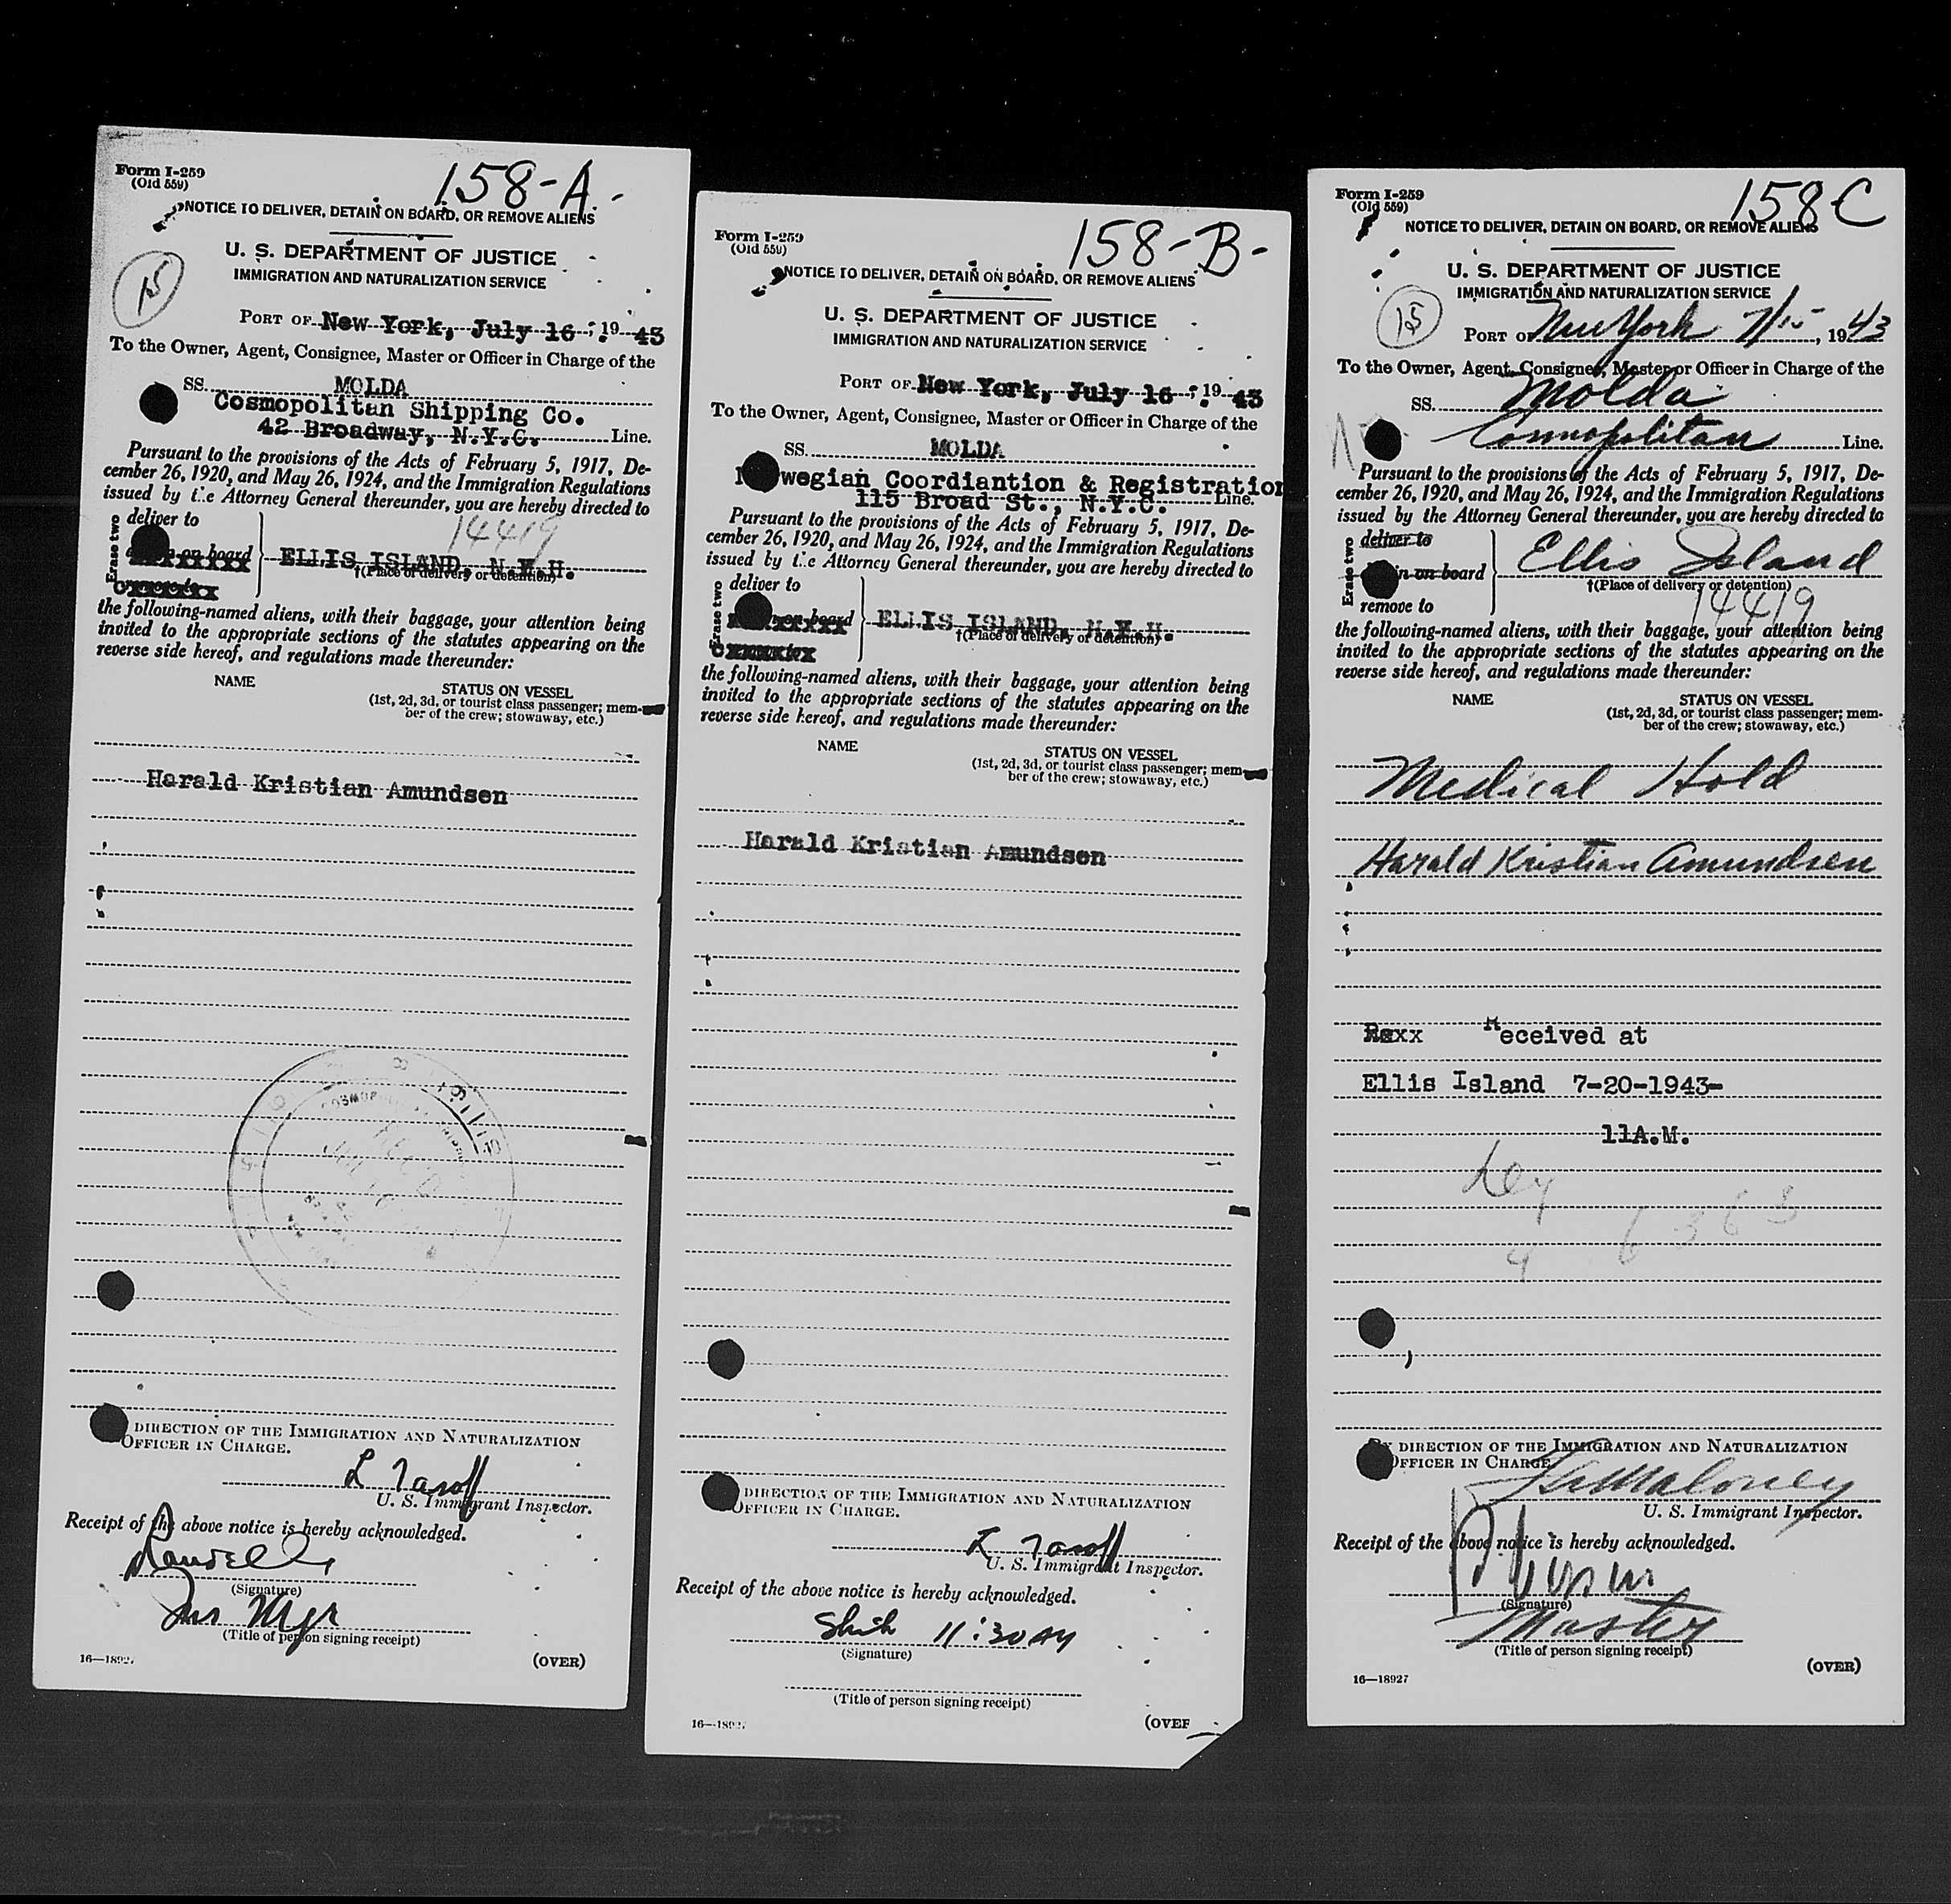 158-A.
Form I-259
(Old 559)
NOTICE TO DELIVER, DETAIN ON BOARD, OR REMOVE ALIENS
U. S. DEPARTMENT OF JUSTICE
IMMIGRATION AND NATURALIZATION SERVICE
15
PORT OF New York, July 16, 1943
To the Owner, Agent, Consignee, Master or Officer in Charge of the
SS. MOLDA
Cosmopolitan Shipping Co.
42 Broadway, N.Y.C. Line.
Pursuant to the provisions of the Acts of February 5, 1917, De-
cember 26, 1920, and May 26, 1924, and the Immigration Regulations
issued by the Attorney General thereunder, you are hereby directed to
14419
Erase two
deliver to
on board
remove to
ELLIS ISLAND, N.Y.H.
†(Place of delivery or detention)
the following-named aliens, with their baggage, your attention being
invited to the appropriate sections of the statutes appearing on the
reverse side hereof, and regulations made thereunder:
NAME
STATUS ON VESSEL
(1st, 2d, 3d, or tourist class passenger; mem-
ber of the crew; stowaway, etc.)
Harald Kristian Amundsen
DIRECTION OF THE IMMIGRATION AND NATURALIZATION
OFFICER IN CHARGE.
L Taroff
U. S. Immigrant Inspector.
Receipt of the above notice is hereby acknowledged.
(Signature)
Ins Mgr
(Title of person signing receipt)
16—18927
(OVER)
158-B-
Form I-259
(Old 559)
NOTICE TO DELIVER, DETAIN ON BOARD, OR REMOVE ALIENS
U. S. DEPARTMENT OF JUSTICE
IMMIGRATION AND NATURALIZATION SERVICE
PORT OF New York, July 16, 1943
To the Owner, Agent, Consignee, Master or Officer in Charge of the
SS. MOLDA
Norwegian Coordiantion & Registration
115 Broad St., N.Y.C. Line.
Pursuant to the provisions of the Acts of February 5, 1917, De-
cember 26, 1920, and May 26, 1924, and the Immigration Regulations
issued by the Attorney General thereunder, you are hereby directed to
Erase two
deliver to
on board
ELLIS ISLAND, N.Y.H.
†(Place of delivery or detention)
the following-named aliens, with their baggage, your attention being
invited to the appropriate sections of the statutes appearing on the
reverse side hereof, and regulations made thereunder:
NAME
STATUS ON VESSEL
(1st, 2d, 3d, or tourist class passenger; mem-
ber of the crew; stowaway, etc.)
Harald Kristian Amundsen
DIRECTION OF THE IMMIGRATION AND NATURALIZATION
OFFICER IN CHARGE.
L Taroff
U. S. Immigrant Inspector.
Receipt of the above notice is hereby acknowledged.
11:30 AM
(Signature)
(Title of person signing receipt)
16—18927
(OVER
158 C
Form I-259
(Old 559)
NOTICE TO DELIVER, DETAIN ON BOARD, OR REMOVE ALIENS
U. S. DEPARTMENT OF JUSTICE
IMMIGRATION AND NATURALIZATION SERVICE
15
PORT OF New York 7/15, 1943
To the Owner, Agent, Consignee, Master or Officer in Charge of the
SS. Molda
Cosmopolitan Line.
Pursuant to the provisions of the Acts of February 5, 1917, De-
cember 26, 1920, and May 26, 1924, and the Immigration Regulations
issued by the Attorney General thereunder, you are hereby directed to
Erase two
deliver to
in on board
remove to
Ellis Island
†(Place of delivery or detention)
14419
the following-named aliens, with their baggage, your attention being
invited to the appropriate sections of the statutes appearing on the
reverse side hereof, and regulations made thereunder:
NAME
STATUS ON VESSEL
(1st, 2d, 3d, or tourist class passenger; mem-
ber of the crew; stowaway, etc.)
Medical Hold
Harald Kristian Amundsen
Rexx Received at
Ellis Island 7-20-1943-
11A.M.
BY DIRECTION OF THE IMMIGRATION AND NATURALIZATION
OFFICER IN CHARGE
Maloney
U. S. Immigrant Inspector.
Receipt of the above notice is hereby acknowledged.
(Signature)
Master
(Title of person signing receipt)
16—18927
(OVER)